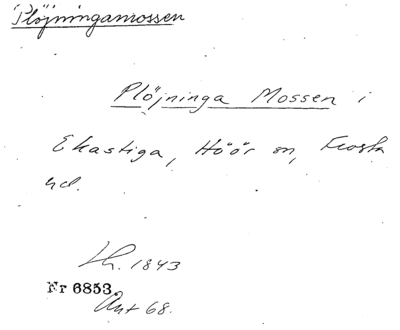 Plöjningamossen
Plöjninga Mossen i
Ekastiga, Höör sn, Frosta
hd.
Lh. 1843
Nr 6853
Ant 68.